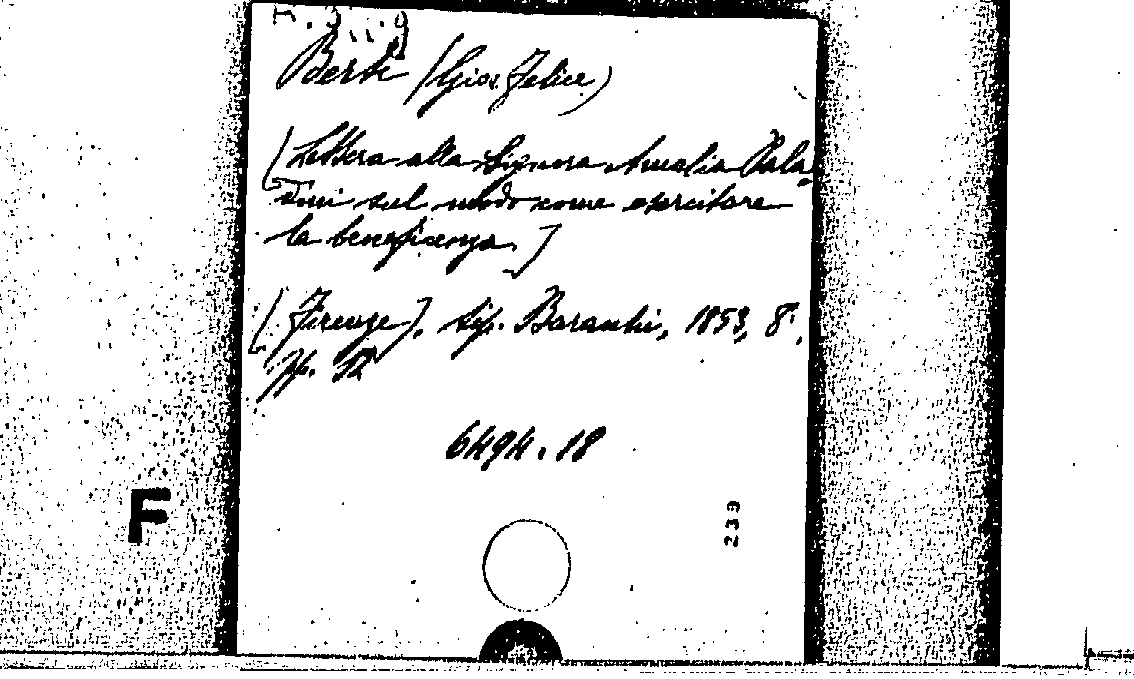 Berti (Gio. Felice)
[Lettera alla Signora Amalia Pala-
dini sul modo come esercitare
la beneficenza.]
[Firenze], tip. Baracchi, 1853, 8°,
pp. 12
6494.18
239
F